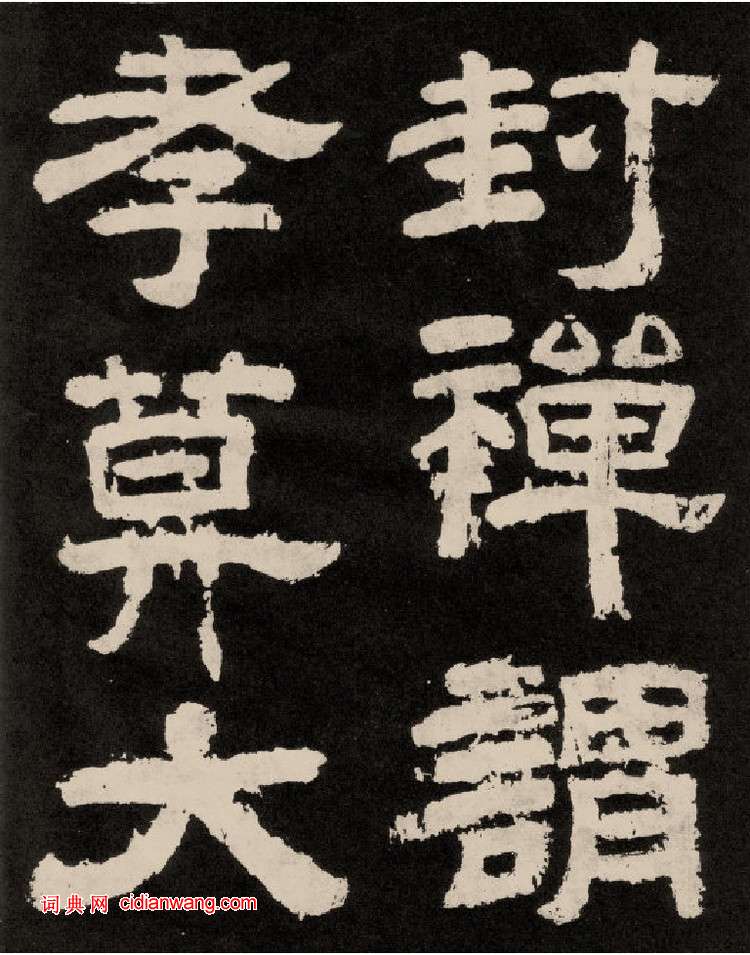 封禪謂
孝莫大
词典网 cidianwang.com